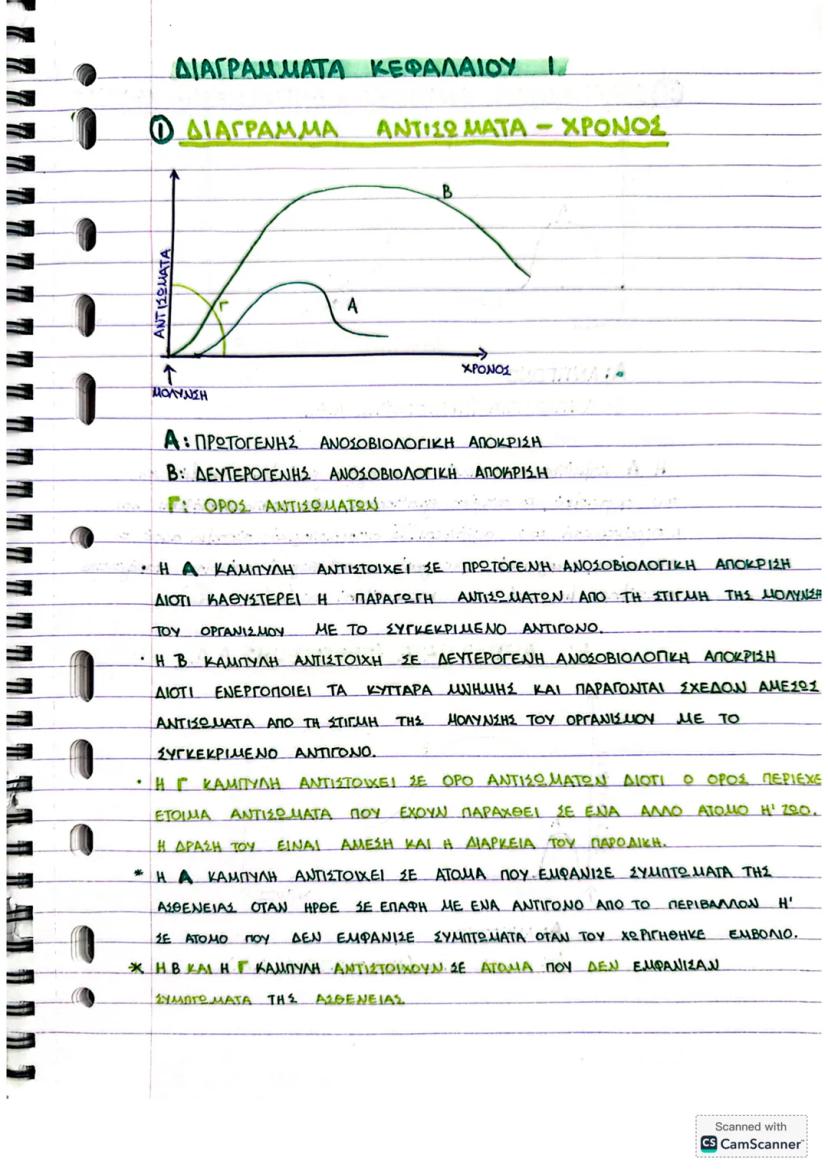 ΔΙΑΓΡΑΜΜΑΤΑ ΚΕΦΑΛΑΙΟΥ 1
① ΔΙΑΓΡΑΜΜΑ ΑΝΤΙΣΩΜΑΤΑ – ΧΡΟΝΟΣ
Β
Γ
Α
ΑΝΤΙΣΩΜΑΤΑ
ΧΡΟΝΟΣ
ΜΟΛΥΝΣΗ
Α: ΠΡΩΤΟΓΕΝΗΣ ΑΝΟΣΟΒΙΟΛΟΓΙΚΗ ΑΠΟΚΡΙΣΗ
Β: ΔΕΥΤΕΡΟΓΕΝΗΣ ΑΝΟΣΟΒΙΟΛΟΓΙΚΗ ΑΠΟΚΡΙΣΗ
Γ: ΟΡΟΣ ΑΝΤΙΣΩΜΑΤΩΝ
· Η Α ΚΑΜΠΥΛΗ ΑΝΤΙΣΤΟΙΧΕΙ ΣΕ ΠΡΩΤΟΓΕΝΗ ΑΝΟΣΟΒΙΟΛΟΓΙΚΗ ΑΠΟΚΡΙΣΗ
ΔΙΟΤΙ ΚΑΘΥΣΤΕΡΕΙ Η ΠΑΡΑΓΩΓΗ ΑΝΤΙΣΩΜΑΤΩΝ ΑΠΟ ΤΗ ΣΤΙΓΜΗ ΤΗΣ ΜΟΛΥΝΣΗ
ΤΟΥ ΟΡΓΑΝΙΣΜΟΥ ΜΕ ΤΟ ΣΥΓΚΕΚΡΙΜΕΝΟ ΑΝΤΙΓΟΝΟ.
· Η Β ΚΑΜΠΥΛΗ ΑΝΤΙΣΤΟΙΧΗ ΣΕ ΔΕΥΤΕΡΟΓΕΝΗ ΑΝΟΣΟΒΙΟΛΟΓΙΚΗ ΑΠΟΚΡΙΣΗ
ΔΙΟΤΙ ΕΝΕΡΓΟΠΟΙΕΙ ΤΑ ΚΥΤΤΑΡΑ ΜΝΗΜΗΣ ΚΑΙ ΠΑΡΑΓΟΝΤΑΙ ΣΧΕΔΟΝ ΑΜΕΣΩΣ
ΑΝΤΙΣΩΜΑΤΑ ΑΠΟ ΤΗ ΣΤΙΓΜΗ ΤΗΣ ΜΟΛΥΝΣΗΣ ΤΟΥ ΟΡΓΑΝΙΣΜΟΥ ΜΕ ΤΟ
ΣΥΓΚΕΚΡΙΜΕΝΟ ΑΝΤΙΓΟΝΟ.
· Η Γ ΚΑΜΠΥΛΗ ΑΝΤΙΣΤΟΙΧΕΙ ΣΕ ΟΡΟ ΑΝΤΙΣΩΜΑΤΩΝ ΔΙΟΤΙ Ο ΟΡΟΣ ΠΕΡΙΕΧΕ
ΕΤΟΙΜΑ ΑΝΤΙΣΩΜΑΤΑ ΠΟΥ ΕΧΟΥΝ ΠΑΡΑΧΘΕΙ ΣΕ ΕΝΑ ΑΛΛΟ ΑΤΟΜΟ Η' ΖΩΟ.
Η ΔΡΑΣΗ ΤΟΥ ΕΙΝΑΙ ΑΜΕΣΗ ΚΑΙ Η ΔΙΑΡΚΕΙΑ ΤΟΥ ΠΑΡΟΔΙΚΗ.
* Η Α ΚΑΜΠΥΛΗ ΑΝΤΙΣΤΟΙΧΕΙ ΣΕ ΑΤΟΜΑ ΠΟΥ ΕΜΦΑΝΙΣΕ ΣΥΜΠΤΩΜΑΤΑ ΤΗΣ
ΑΣΘΕΝΕΙΑΣ ΟΤΑΝ ΗΡΘΕ ΣΕ ΕΠΑΦΗ ΜΕ ΕΝΑ ΑΝΤΙΓΟΝΟ ΑΠΟ ΤΟ ΠΕΡΙΒΑΛΛΟΝ Η'
ΣΕ ΑΤΟΜΟ ΠΟΥ ΔΕΝ ΕΜΦΑΝΙΣΕ ΣΥΜΠΤΩΜΑΤΑ ΟΤΑΝ ΤΟΥ ΧΩΡΙΓΗΘΗΚΕ ΕΜΒΟΛΙΟ.
* Η Β ΚΑΙ Η Γ ΚΑΜΠΥΛΗ ΑΝΤΙΣΤΟΙΧΟΥΝ ΣΕ ΑΤΟΜΑ ΠΟΥ ΔΕΝ ΕΜΦΑΝΙΣΑΝ
ΣΥΜΠΤΩΜΑΤΑ ΤΗΣ ΑΣΘΕΝΕΙΑΣ
Scanned with
CS CamScanner